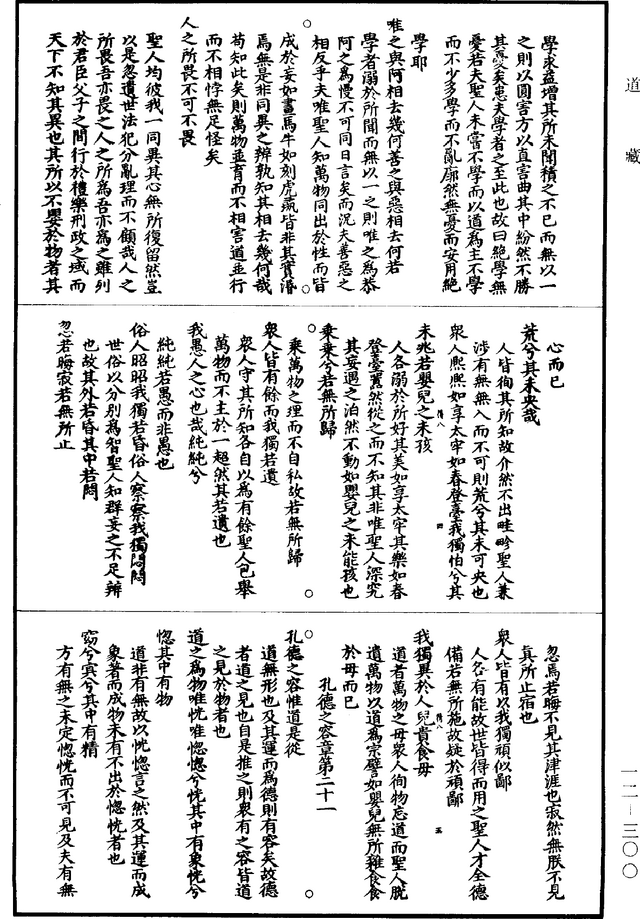 道藏
學求益增其所未聞積之不已而無以一
之則以圓害方以直害曲其中紛然不勝
其憂矣患夫學者之至此也故曰絕學無
憂若夫聖人未嘗不學而以道為主不學
而不少多學而不亂廓然無憂而安用絕
學耶
唯之與阿相去幾何善之與惡相去何若
學者溺於所聞而無以一之則唯之為恭
阿之為慢不可同日言矣而況夫善惡之
相反乎夫唯聖人知萬物同出於性而皆
成於妄如畫馬牛如刻虎彘皆非其實湣
焉無是非同異之辨孰知其相去幾何哉
苟知此矣則萬物並育而不相害道並行
而不相悖無足怪矣
人之所畏不可不畏
聖人均彼我一同異其心無所復留然豈
以是忽遺世法犯分亂理而不顧哉人之
所畏吾亦畏之人之所為吾亦為之雖列
於君臣父子之間行於禮樂刑政之域而
天下不知其異也其所以不嬰於物者其
心而已
荒兮其未央哉
人皆徇其所知故介然不出畦畛聖人兼
涉有無無入而不可則荒兮其未可央也
衆人熙熙如享太宰如春登臺我獨怕兮其
未兆若嬰兒之未孩
人各溺於所好其美如享太牢其樂如春
登臺嚚然從之而不知其非唯聖人深究
其妄遇之泊然不動如嬰兒之未能孩也
乘乘兮若無所歸
乘萬物之理而不自私故若無所歸
衆人皆有餘而我獨若遺
衆人守其所知各自以為有餘聖人包舉
萬物而不主於一超然其若遺也
我愚人之心也哉純純兮
純純若愚而非愚也
俗人昭昭我獨若昏俗人察察我獨悶悶
世俗以分別為智聖人知群妄之不足辨
也故其外若昏其中若悶
忽若晦寂若無所止
忽焉若晦不見其津涯也寂然無朕不見
其所止宿也
衆人皆有以我獨頑似鄙
人各有能故世皆得而用之聖人才全德
備若無所施故疑於頑鄙
我獨異於人兒貴食母
道者萬物之母衆人徇物忘道而聖人脫
遺萬物以道為宗譬如嬰兒無所雜食食
於母而已
孔德之容章第二十一
孔德之容惟道是從
道無形也及其運而為德則有容矣故德
者道之見也自是推之則衆有之容皆道
之見於物者也
道之為物唯恍唯惚惚兮恍其中有象恍兮
惚其中有物
道非有無故以恍惚言之然及其運而成
象著而成物未有不出於惚恍者也
窈兮冥兮其中有精
方有無之未定惚恍而不可見及夫有無
一二-三〇〇